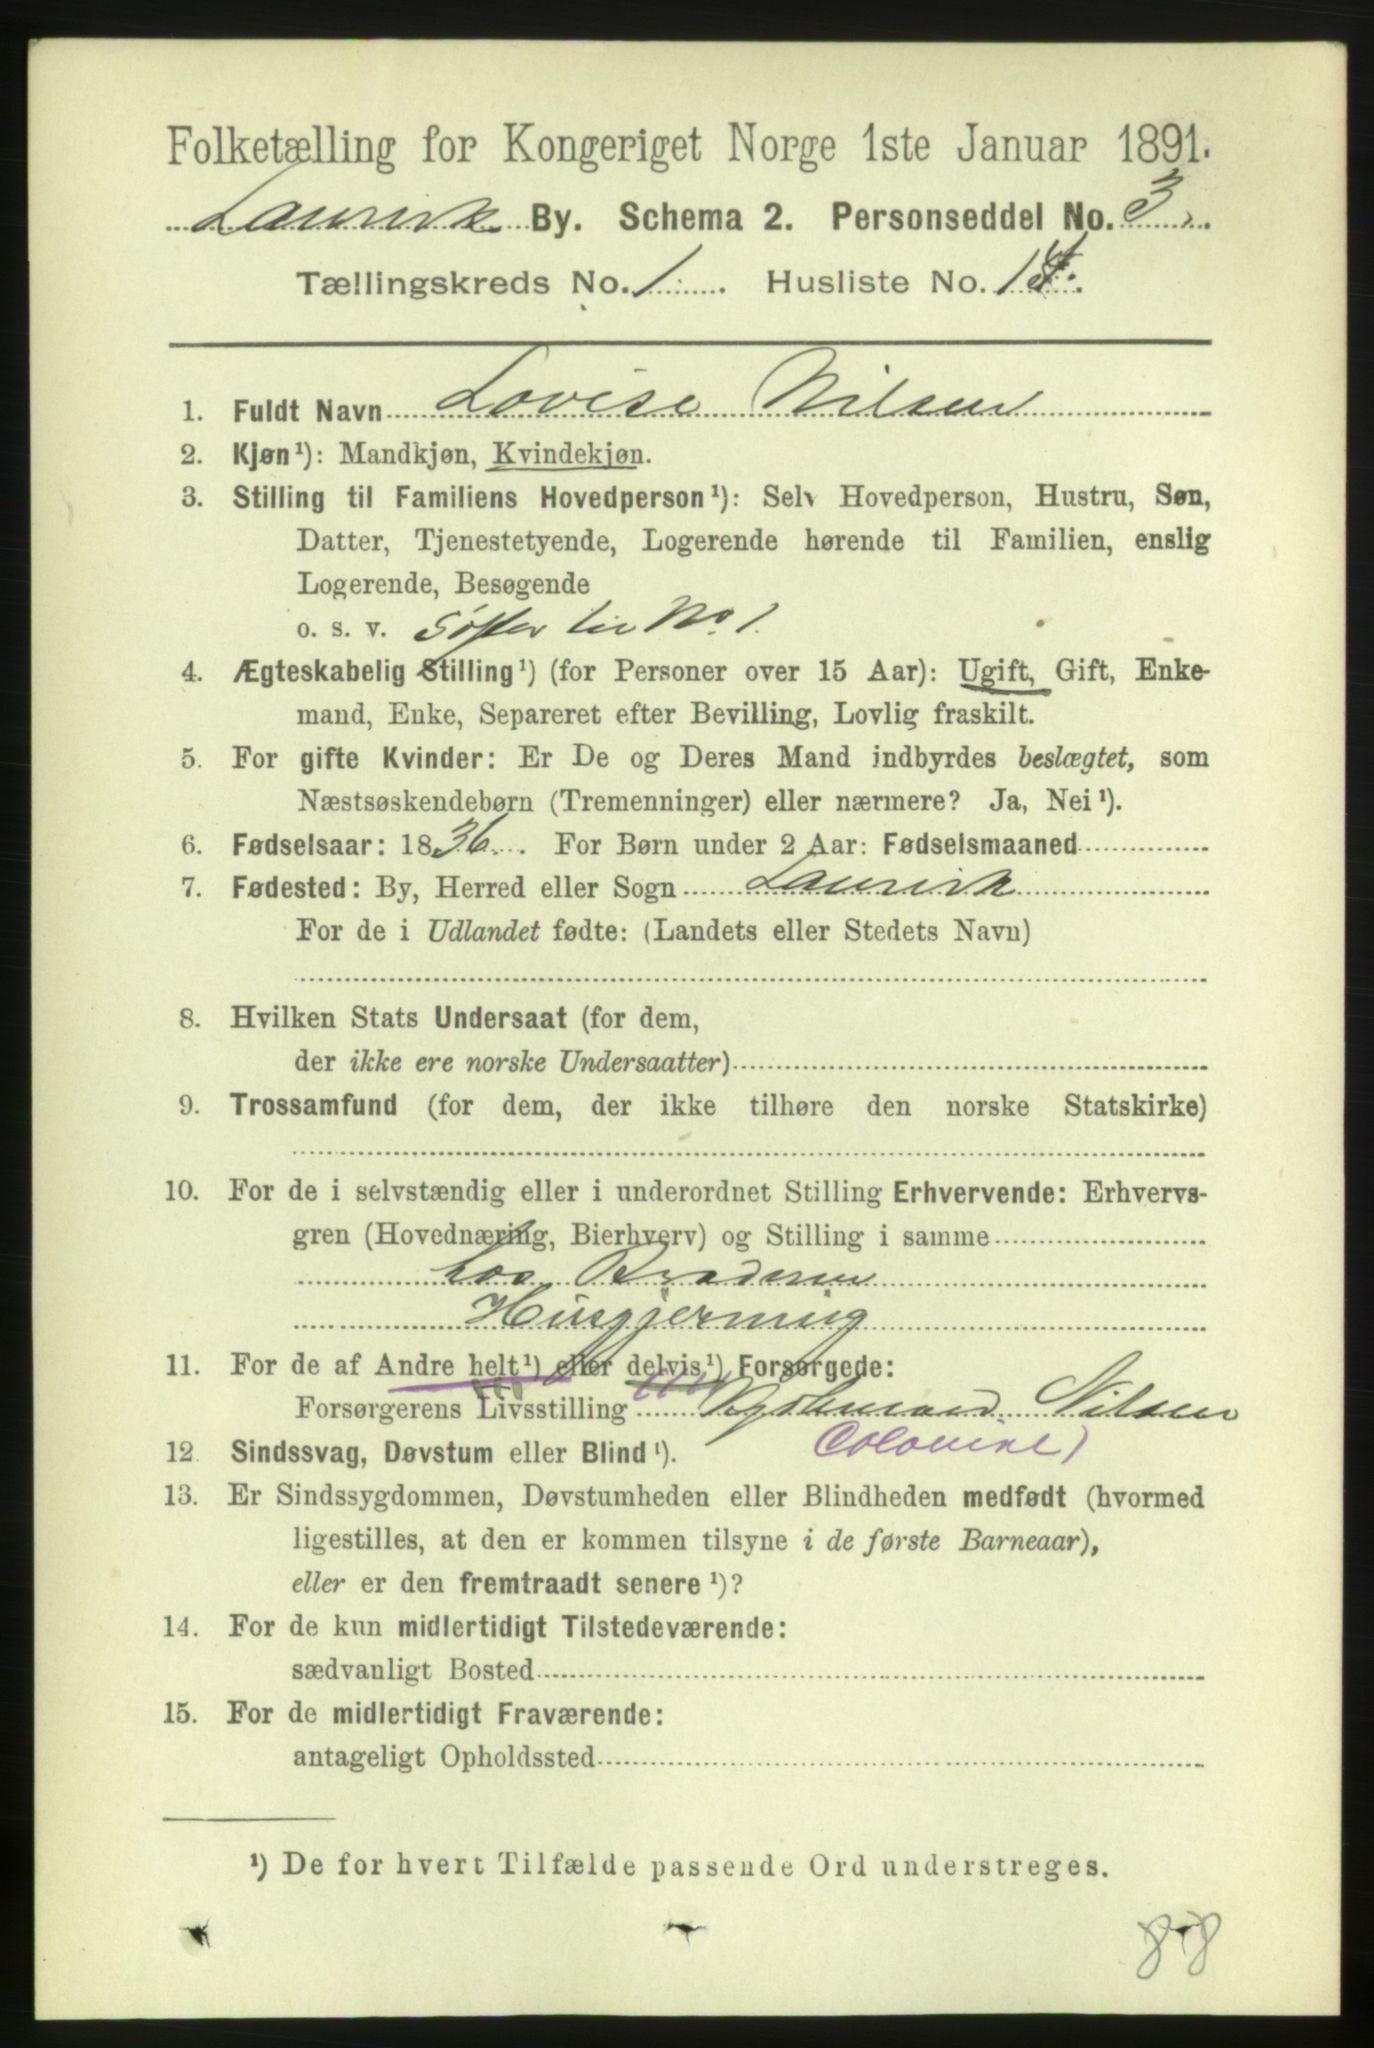 Folketælling for Kongeriget Norge 1ste Januar 1891.
Laurvik By. Schema 2. Personseddel No. 3
Tællingskreds No. 1. Husliste No. 14.
1. Fuldt Navn Lovise Nilsen
2. Kjøn¹): Mandkjøn, Kvindekjøn.
3. Stilling til Familiens Hovedperson¹): Selv Hovedperson, Hustru, Søn,
Datter, Tjenestetyende, Logerende hørende til Familien, enslig
Logerende, Besøgende
o. s. v. Søster til No 1.
4. Ægteskabelig Stilling¹) (for Personer over 15 Aar): Ugift, Gift, Enke-
mand, Enke, Separeret efter Bevilling, Lovlig fraskilt.
5. For gifte Kvinder: Er De og Deres Mand indbyrdes beslægtet, som
Næstsøskendebørn (Tremenninger) eller nærmere? Ja, Nei¹).
6. Fødselsaar: 1836. For Børn under 2 Aar: Fødselsmaaned
7. Fødested: By, Herred eller Sogn Laurvik
For de i Udlandet fødte: (Landets eller Stedets Navn)
8. Hvilken Stats Undersaat (for dem,
der ikke ere norske Undersaatter)
9. Trossamfund (for dem, der ikke tilhøre den norske Statskirke)
10. For de i selvstændig eller i underordnet Stilling Erhvervende: Erhvervs-
gren (Hovednæring, Bierhverv) og Stilling i samme
hos Broderen
Husgjerning
11. For de af Andre helt¹) eller delvis¹) Forsørgede:
Forsørgerens Livsstilling Kjøbmand Nilsen
12. Sindssvag, Døvstum eller Blind¹). Colonial)
13. Er Sindssygdommen, Døvstumheden eller Blindheden medfødt (hvormed
ligestilles, at den er kommen tilsyne i de første Barneaar),
eller er den fremtraadt senere¹)?
14. For de kun midlertidigt Tilstedeværende:
sædvanligt Bosted
15. For de midlertidigt Fraværende:
antageligt Opholdssted
¹) De for hvert Tilfælde passende Ord understreges.
88